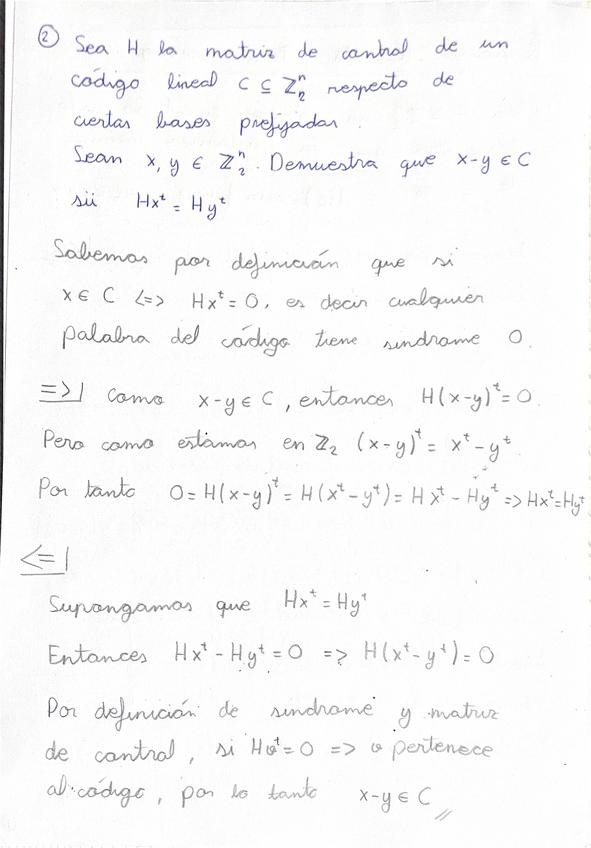 ② Sea H la matriz de control de un
código lineal C ⊆ ℤ₂ⁿ respecto de
ciertas bases prefijadas.
Sean x, y ∈ ℤ₂ⁿ. Demuestra que x-y ∈ C
sii Hxᵗ = Hyᵗ
Sabemos por definición que si
x ∈ C <=> Hxᵗ = 0, es decir cualquier
palabra del código tiene sindrome 0.
=>| Como x-y ∈ C, entonces H(x-y)ᵗ = 0
Pero como estamos en ℤ₂ (x-y)ᵗ = xᵗ - yᵗ
Por tanto 0 = H(x-y)ᵗ = H(xᵗ-yᵗ) = Hxᵗ - Hyᵗ => Hxᵗ = Hyᵗ
<=|
Supongamos que Hxᵗ = Hyᵗ
Entonces Hxᵗ - Hyᵗ = 0 => H(xᵗ-yᵗ) = 0
Por definición de sindrome y matriz
de control, si Hvᵗ = 0 => v pertenece
al código, por lo tanto x-y ∈ C //